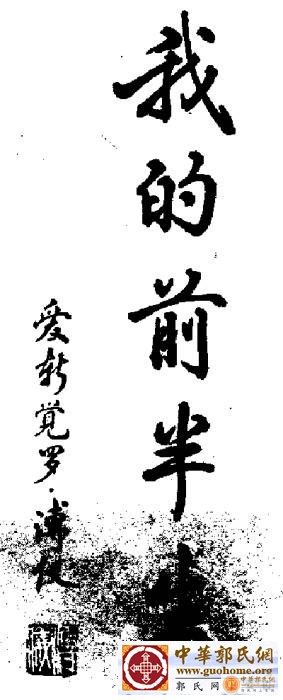 我的前半生
爱新觉罗·溥仪
中華郭氏網
www.guohome.org
郭氏网
中華郭氏網